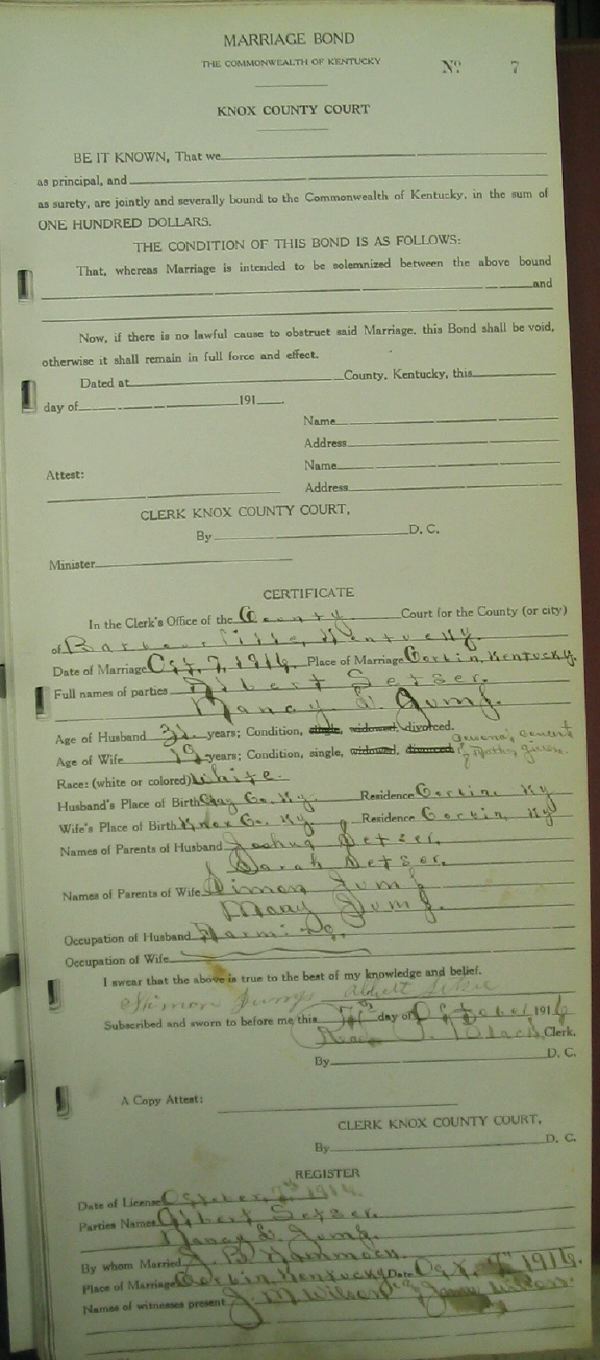 MARRIAGE BOND
THE COMMONWEALTH OF KENTUCKY
Nº 7
KNOX COUNTY COURT
BE IT KNOWN, That we
as principal, and
as surety, are jointly and severally bound to the Commonwealth of Kentucky, in the sum of
ONE HUNDRED DOLLARS.
THE CONDITION OF THIS BOND IS AS FOLLOWS:
That, whereas Marriage is intended to be solemnized between the above bound
and
Now, if there is no lawful cause to obstruct said Marriage, this Bond shall be void,
otherwise it shall remain in full force and effect.
Dated at County, Kentucky, this
day of 191
Name
Address
Name
Attest:
Address
CLERK KNOX COUNTY COURT,
By D. C.
Minister
CERTIFICATE
In the Clerk's Office of the County Court for the County (or city)
of Barbourville, Kentucky.
Date of Marriage Oct, 7, 1916, Place of Marriage Corbin, Kentucky.
Full names of parties Albert Setser.
Nancy
Age of Husband 31 years; Condition, single, widowed, divorced.
Age of Wife 19 years; Condition, single, widowed, divorced
consent
of Mother given.
Race: (white or colored) White.
Husband's Place of Birth Clay Co. Ky. Residence Corbin, Ky
Wife's Place of Birth Knox Co. Ky. Residence Corbin, Ky
Names of Parents of Husband Joshua Setser,
Sarah Setser.
Names of Parents of Wife Simon
Mary
Occupation of Husband Farming.
Occupation of Wife
I swear that the above is true to the best of my knowledge and belief.
Albert
Subscribed and sworn to before me this 7th day of October 1916
Read P. Black Clerk.
By D. C.
A Copy Attest:
CLERK KNOX COUNTY COURT,
By D. C.
REGISTER
Date of License October, 7th 1916.
Parties Names Albert Setser.
Nancy
By whom Married J. B. Hammock.
Place of Marriage Corbin, Kentucky Date Oct. 7th 1916.
Names of witnesses present J. M. Wilson